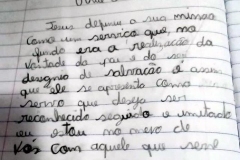 Jesus define a sua missão
como um serviço que no
fundo era a realização da
vontade do pai e do seu
designio de salvação é assim
que ele se apresenta como
servo que deseja ser
reconhecido seguido e imitado
eu estou no meio de
vos com aquele que serve